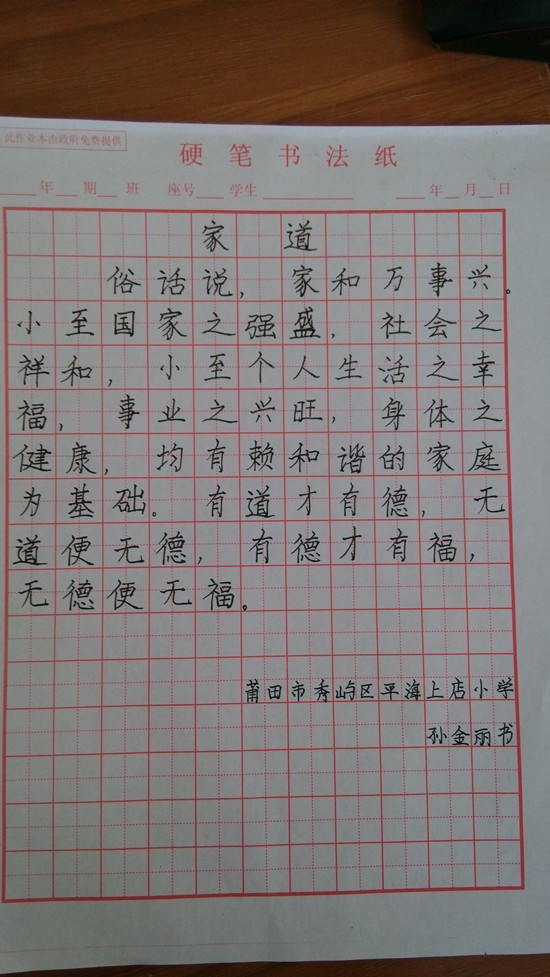 此作业本由政府免费提供
硬笔书法纸
年 期 班 座号 学生 年 月 日
家道
俗话说，家和万事兴。
小至国家之强盛，社会之
祥和，小至个人生活之幸
福，事业之兴旺，身体之
健康，均有赖和谐的家庭
为基础。有道才有德，无
道便无德，有德才有福，
无德便无福。
莆田市秀屿区平海上店小学
孙金丽书